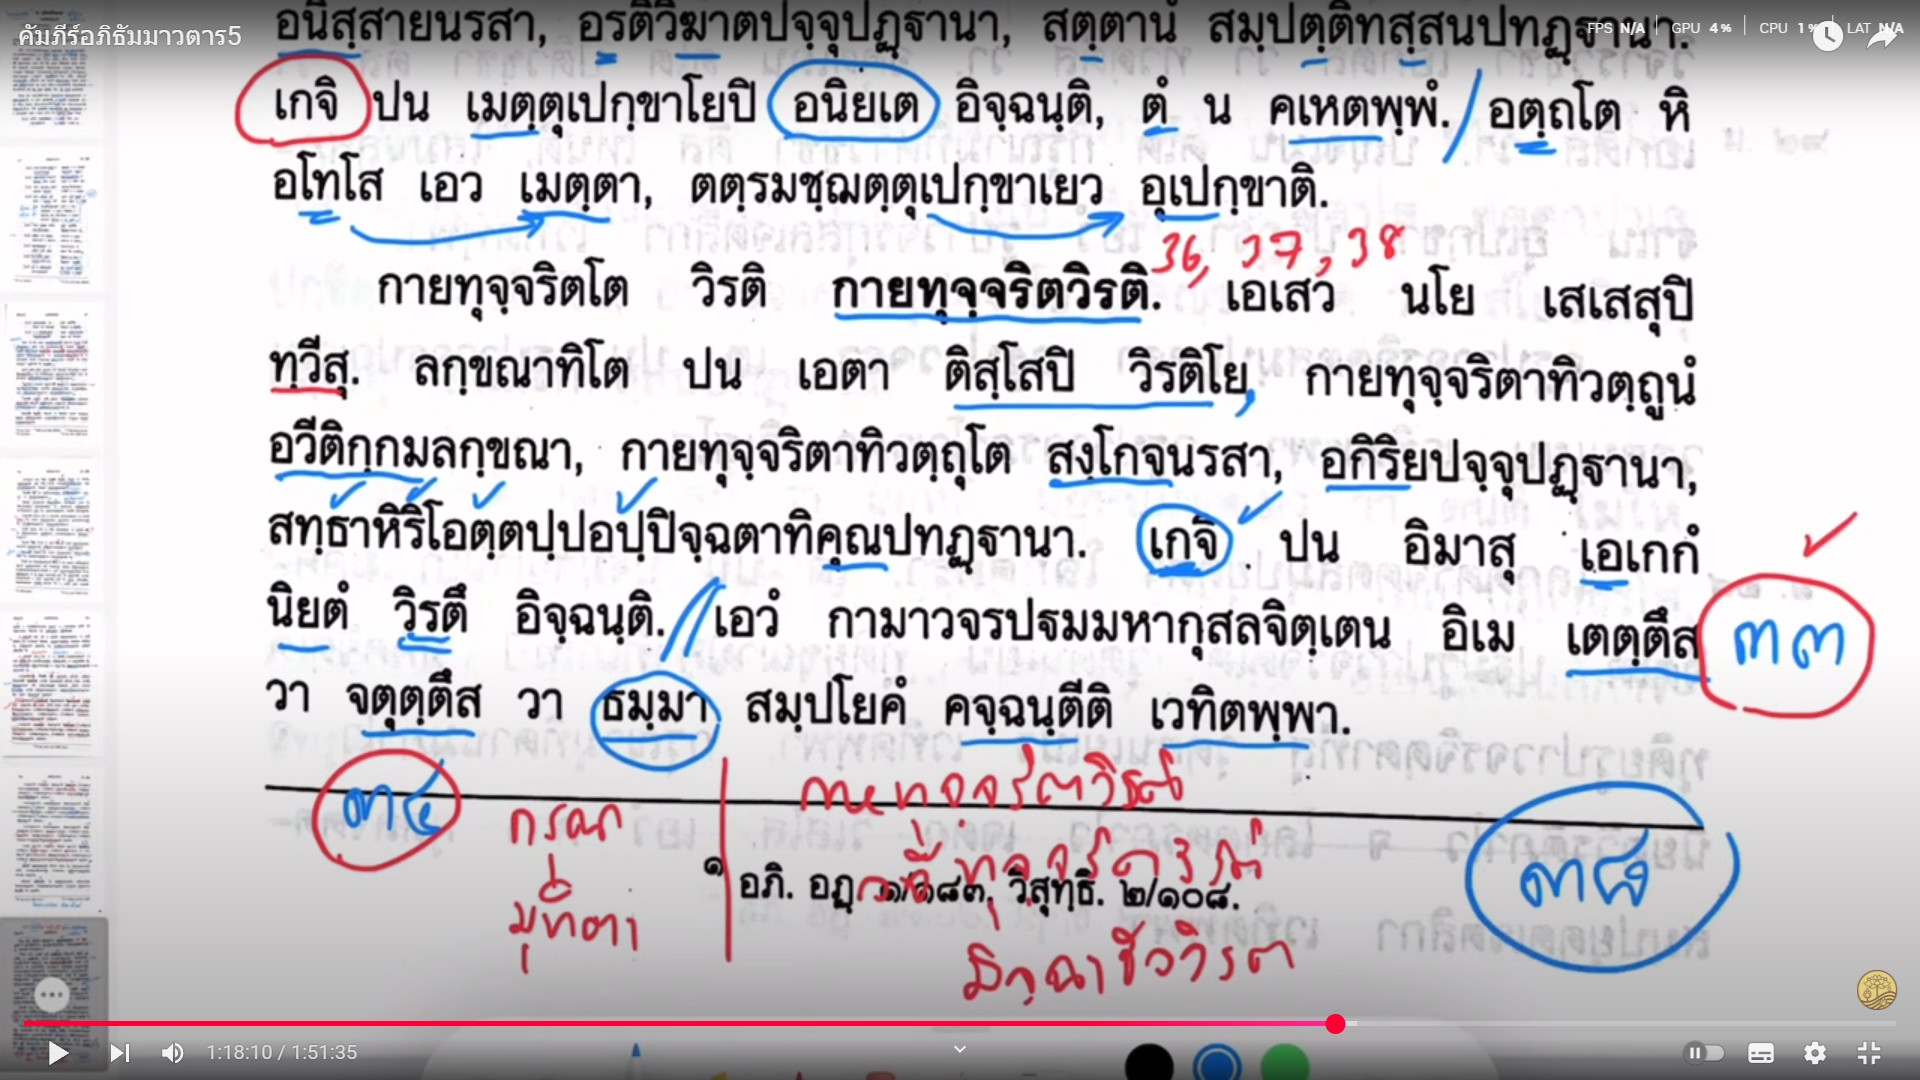 คัมภีร์อภิธัมมาวตาร5
FPS N/A GPU 4% CPU 1% LAT N/A
อนิสฺสายนรสา, อรติวิฆาตปจฺจุปฏฺฐานา, สตฺตานํ สมฺปตฺติทสฺสนปทฏฺฐานา.
เกจิ ปน เมตฺตุเปกฺขาโยปิ อนิยเต อิจฺฉนฺติ, ตํ น คเหตพฺพํ. อตฺถโต หิ
อโทโส เอว เมตฺตา, ตตฺรมชฺฌตฺตุเปกฺขาเยว อุเปกฺขาติ.
36, 37, 38
กายทุจฺจริตโต วิรติ กายทุจฺจริตวิรติ. เอเสว นโย เสเสสุปิ
ทฺวีสุ. ลกฺขณาทิโต ปน เอตา ติสฺโสปิ วิรติโย, กายทุจฺจริตาทิวตฺถูนํ
อวีติกฺกมลกฺขณา, กายทุจฺจริตาทิวตฺถุโต สงฺโกจนรสา, อกิริยปจฺจุปฏฺฐานา,
สทฺธาหิริโอตฺตปฺปอปฺปิจฺฉตาทิคุณปทฏฺฐานา. เกจิ ปน อิมาสุ เอเกกํ
นิยตํ วิรตึ อิจฺฉนฺติ. เอวํ กามาวจรปฐมมหากุสลจิตฺเตน อิเม เตตฺตึส
๓๓
วา จตุตฺตึส วา ธมฺมา สมฺปโยคํ คจฺฉนฺตีติ เวทิตพฺพา.
๓๔
กรุณา
มุทิตา
กายทุจฺจริตวิรติ
วจีทุจฺจริตวิรติ
มิจฺฉาชีววิรติ
๓๘
๑ อภิ. อฏฺ. ๑/๑๘๓. วิสุทฺธิ. ๒/๑๐๘.
1:18:10 / 1:51:35